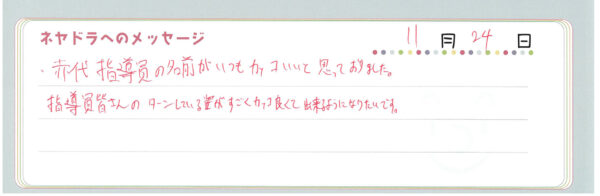 ネヤドラへのメッセージ
11月24日
・赤代指導員の名前がいつもカッコいいと思っておりました。
指導員皆さんのターンしている姿がすごくカッコ良くて出来るようになりたいです。